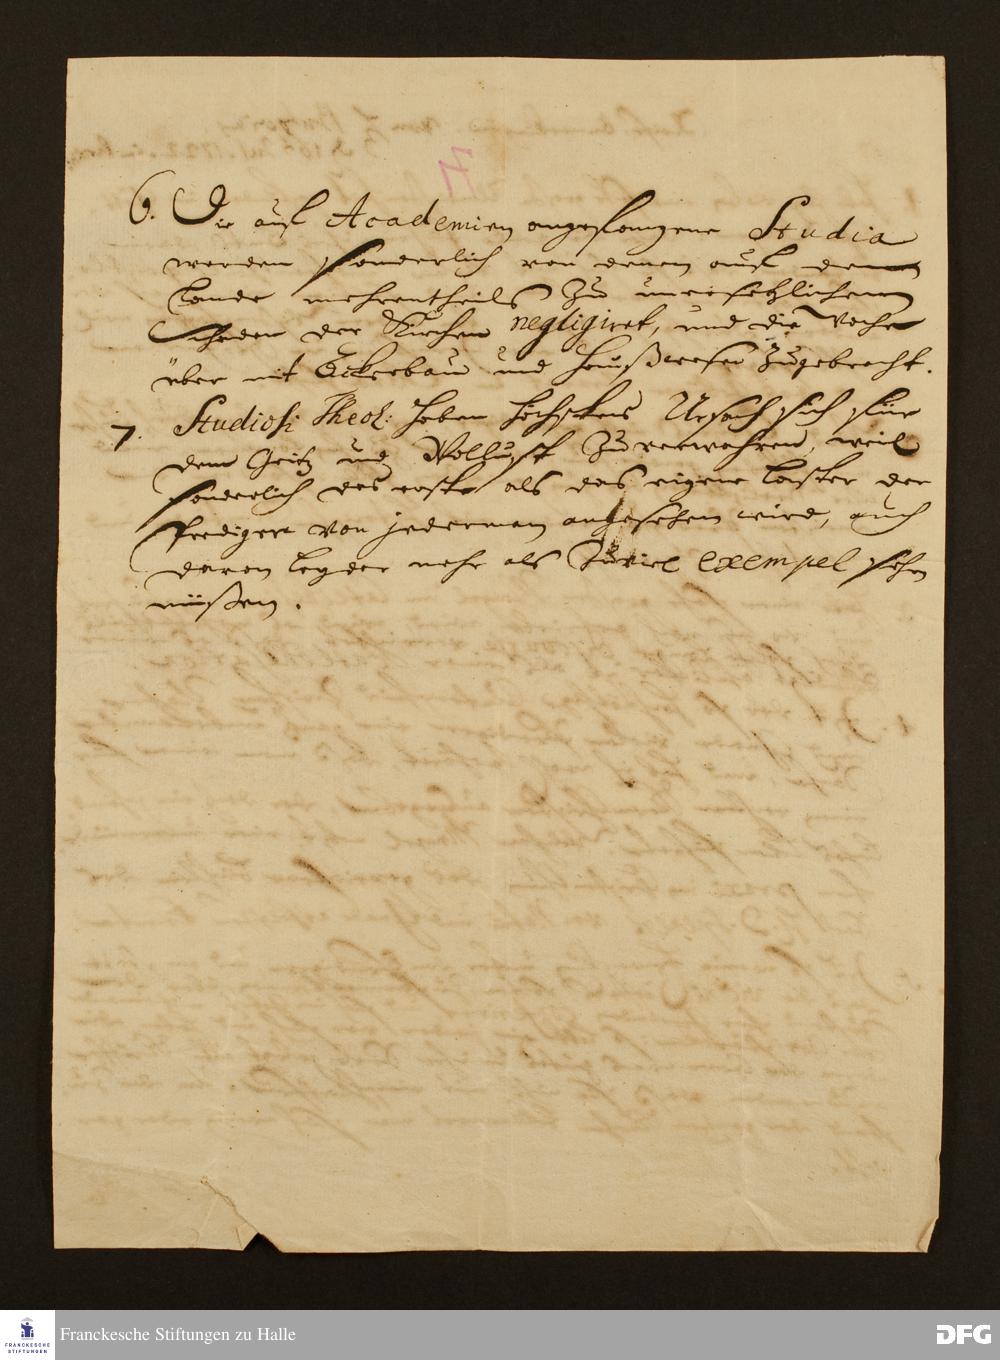 6. Die auf Academien angefangene Studia
werden sonderlich von denen auf dem
Lande mehrentheils zu unersetzlichem
Schaden der Kirchen negligiret, und die Woche
über mit Ackerbau und Haußwesen zugebracht.
7. Studiosi Theol: haben höchstens Ursach sich für
dem Geitz und Wollust zu verwahren, weil
sonderlich das erste als das eigene Laster der
Prediger von jederman angesehen wird, auch
davon leyder mehr als zuviel exempel sehn
müßen.
Franckesche Stiftungen zu Halle
FRANCKESCHE
STIFTUNGEN
DFG